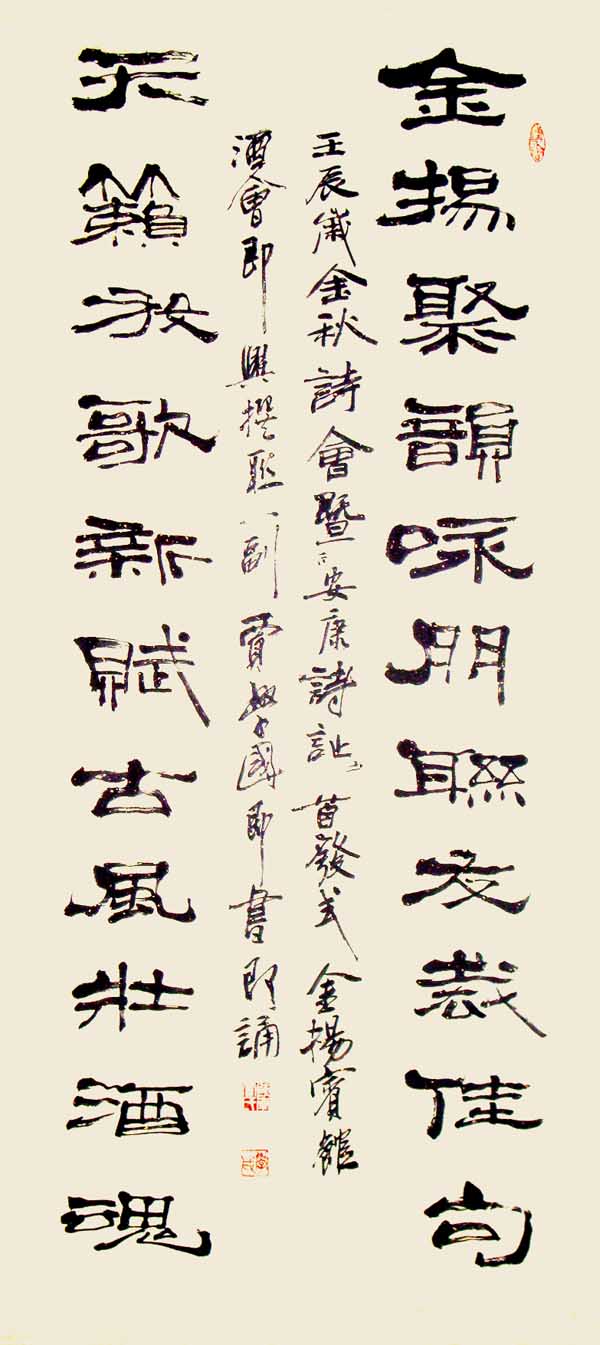 金揚聚韻咏朋聯友裁佳句
壬辰歲金秋詩會暨安康詩首發式金揚賓館
酒會即興撰聯一副賈學國即書即誦
天籟放歌新賦古風壯酒魂